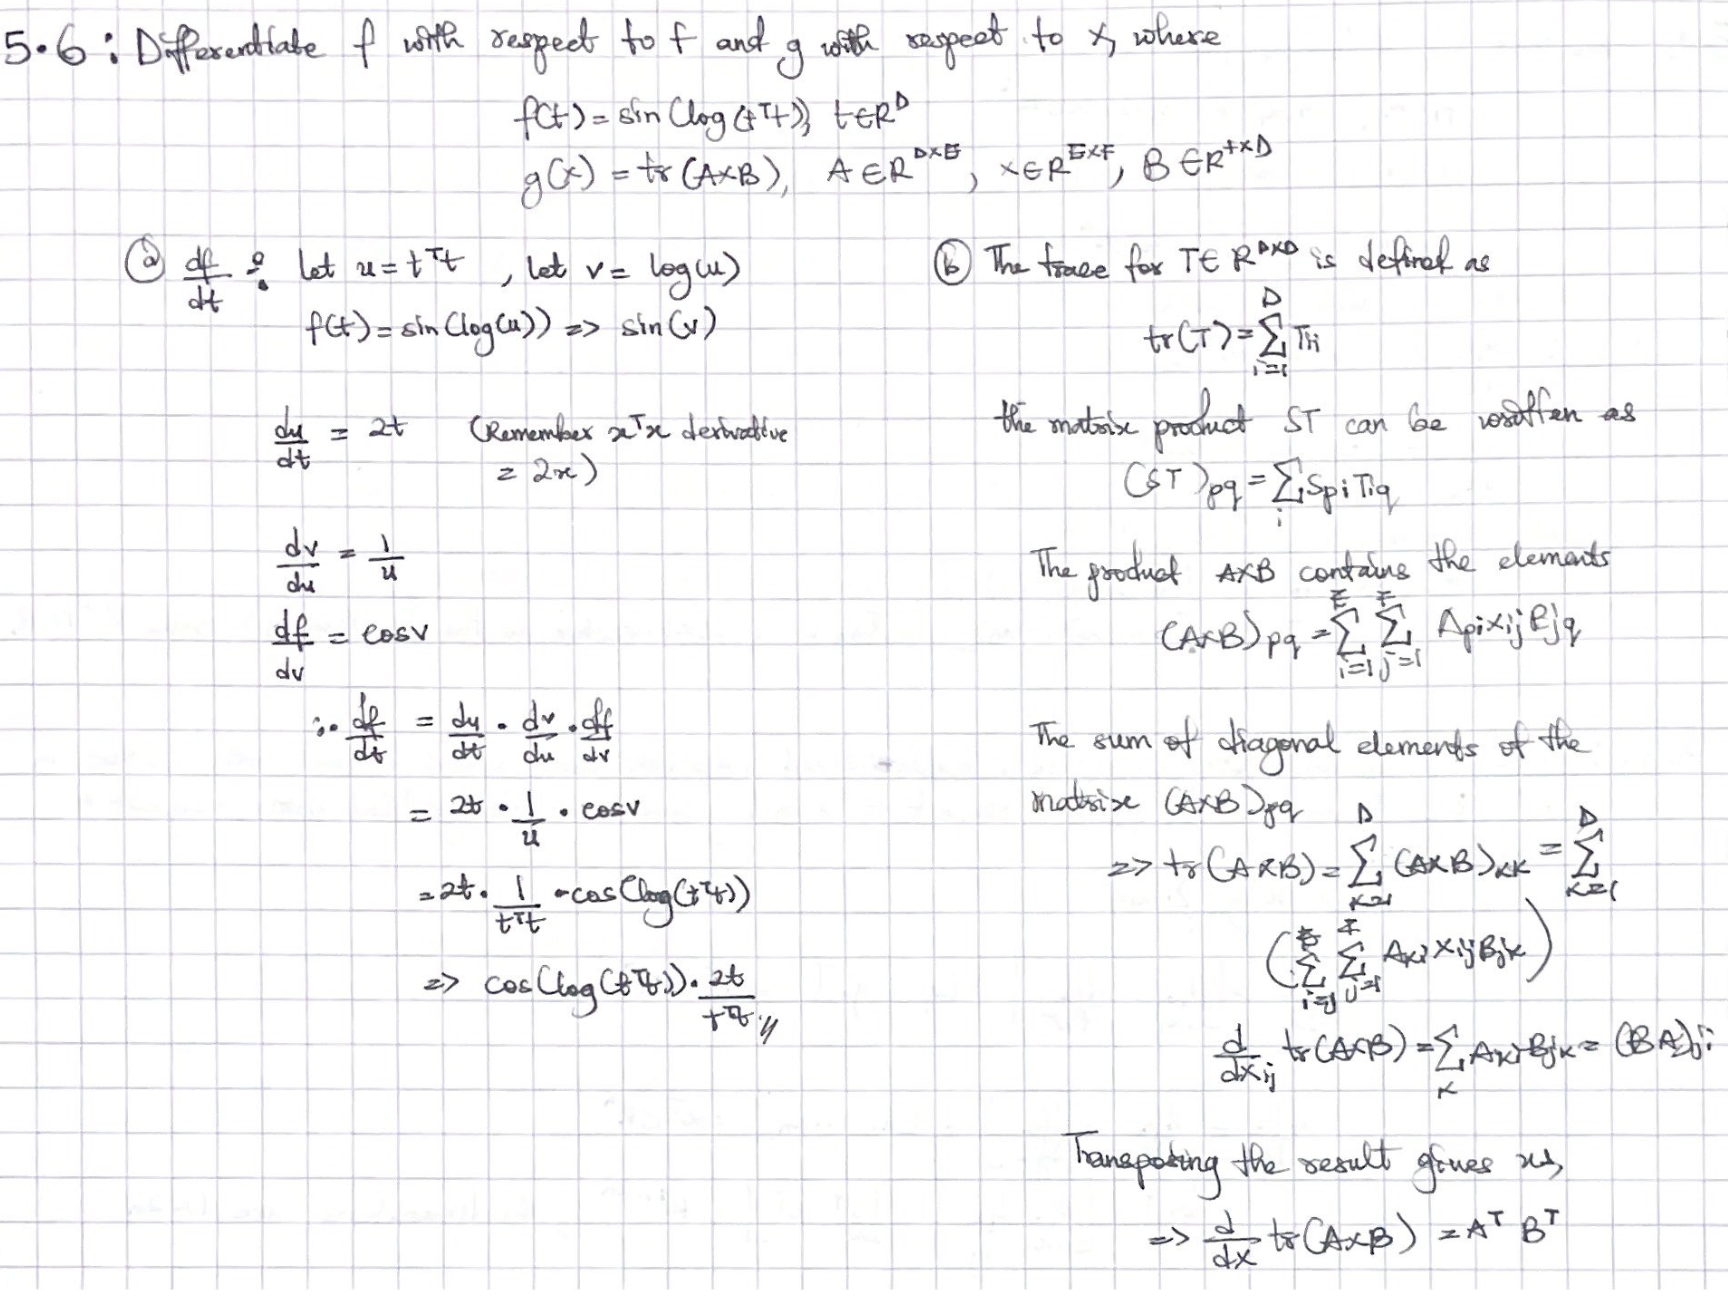 5.6: Differentiate f with respect to t and g with respect to X, where
f(t) = sin(log(tᵀt)), t∈Rᴰ
g(x) = tr(AXB), A∈R^{D×E}, X∈R^{E×F}, B∈R^{F×D}
(a) df/dt : Let u = tᵀt, Let v = log(u)
f(t) = sin(log(u)) => sin(v)
du/dt = 2t (Remember xᵀx derivative
= 2x)
dv/du = 1/u
df/dv = cosv
∴ df/dt = du/dt · dv/du · df/dv
= 2t · 1/u · cosv
= 2t · 1/tᵀt · cos(log(tᵀt))
=> cos(log(tᵀt)) · 2t/tᵀt //
(b) The trace for T∈R^{D×D} is defined as
tr(T) = Σ_{i=1}^{D} Tii
the matrix product ST can be written as
(ST)pq = Σ_i Spi Tiq
The product AXB contains the elements
(AXB)pq = Σ_{i=1}^{E} Σ_{j=1}^{F} Api Xij Bjq
The sum of diagonal elements of the
matrix (AXB)pq
=> tr(AXB) = Σ_{K=1}^{D} (AXB)KK = Σ_{K=1}^{D}
(Σ_{i=1}^{E} Σ_{j=1}^{F} AKi Xij BjK)
d/dXij tr(AXB) = Σ_K AKi BjK = (BA)ji
Transposing the result gives us,
=> d/dX tr(AXB) = Aᵀ Bᵀ